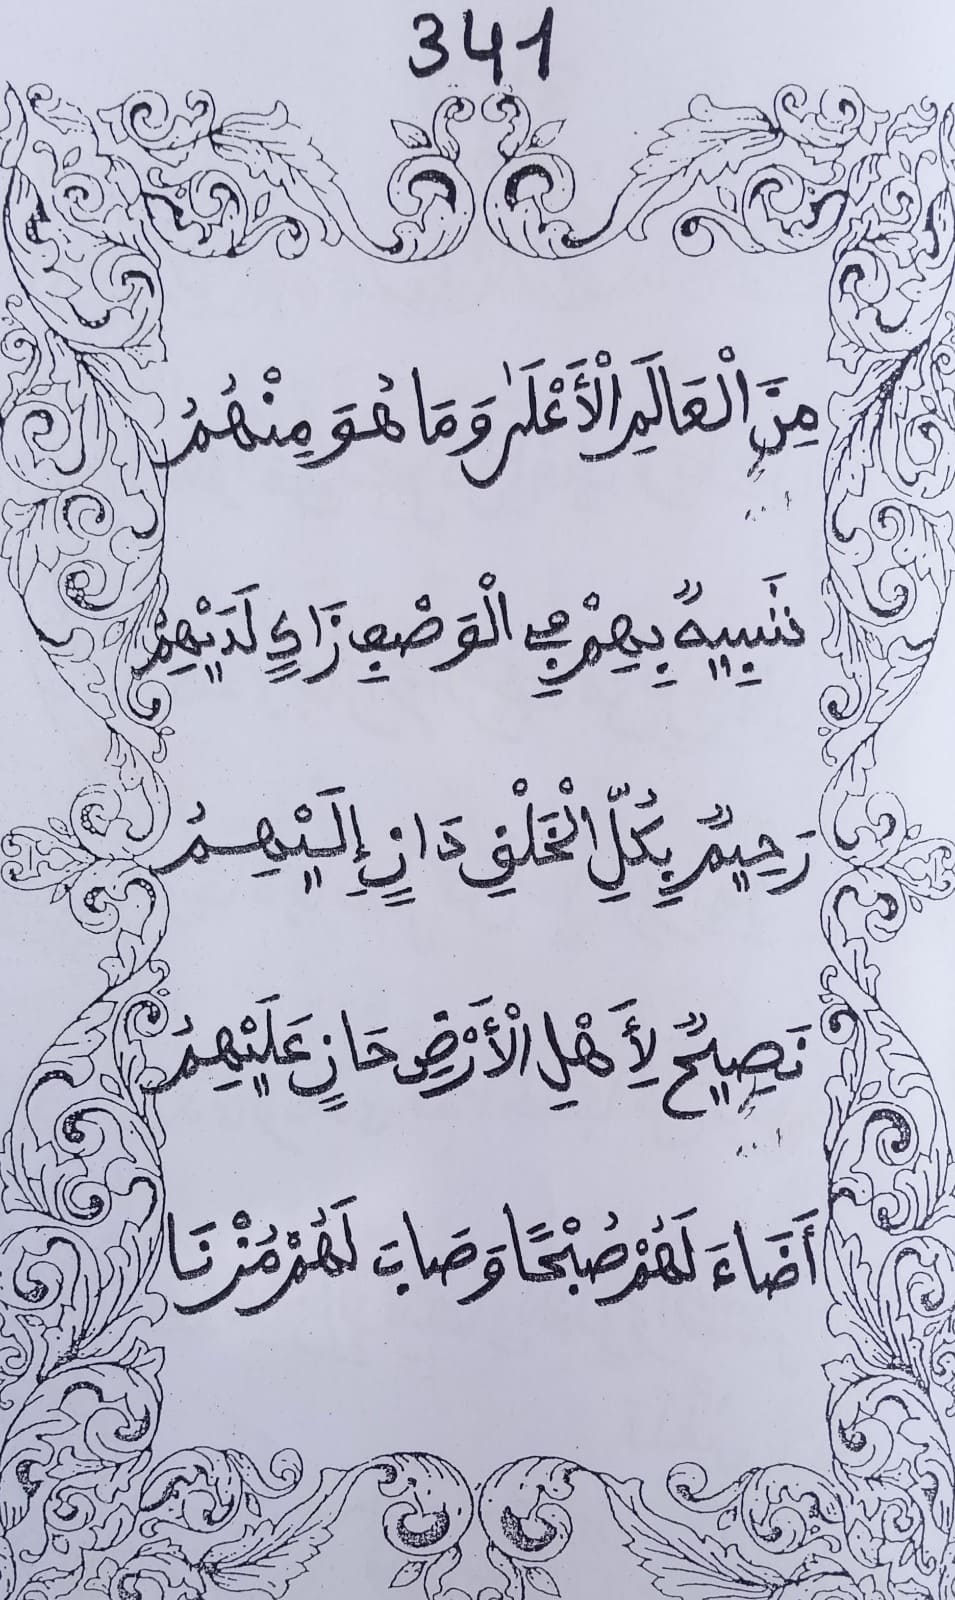 341
مِنَ الْعَالَمِ الْأَعْلَىٰ وَمَا هُوَ مِنْهُمُ
شَبِيهٌ بِهِمْ فِي الْوَصْفِ زَاكٍ لَدَيْهِمُ
رَحِيمٌ بِكُلِّ الْخَلْقِ دَانٍ إِلَيْهِمُ
نَصِيحٌ لِأَهْلِ الْأَرْضِ حَانٍ عَلَيْهِمُ
أَضَاءَ لَهُمْ صُبْحًا وَصَابَ لَهُمْ مُزْنَا